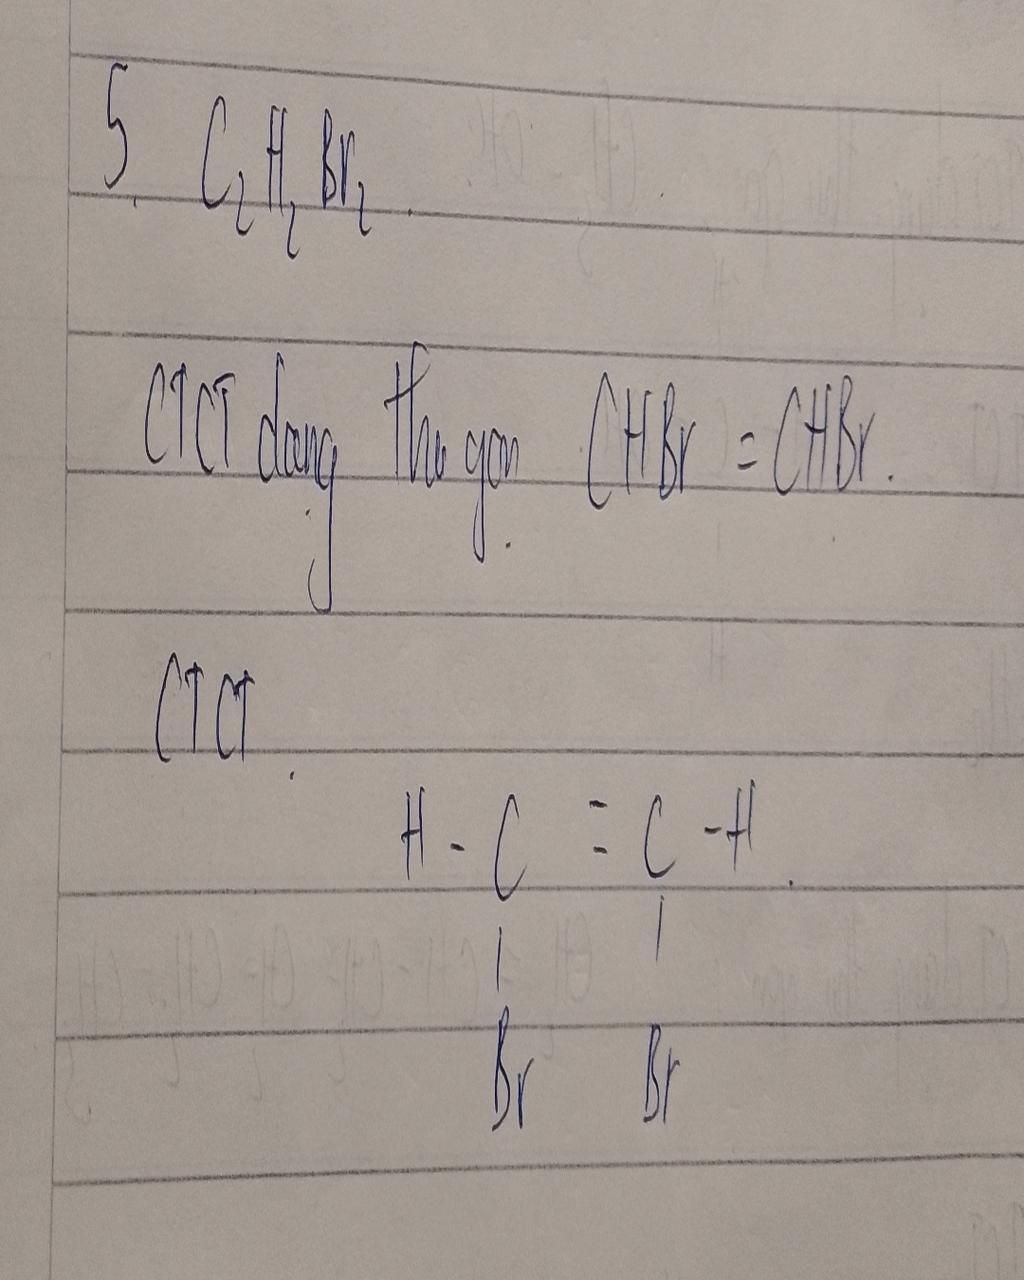 5. C₂H₂Br₂.
CTCT dạng thu gọn CHBr = CHBr.
CTCT
H - C = C - H.
| |
Br Br